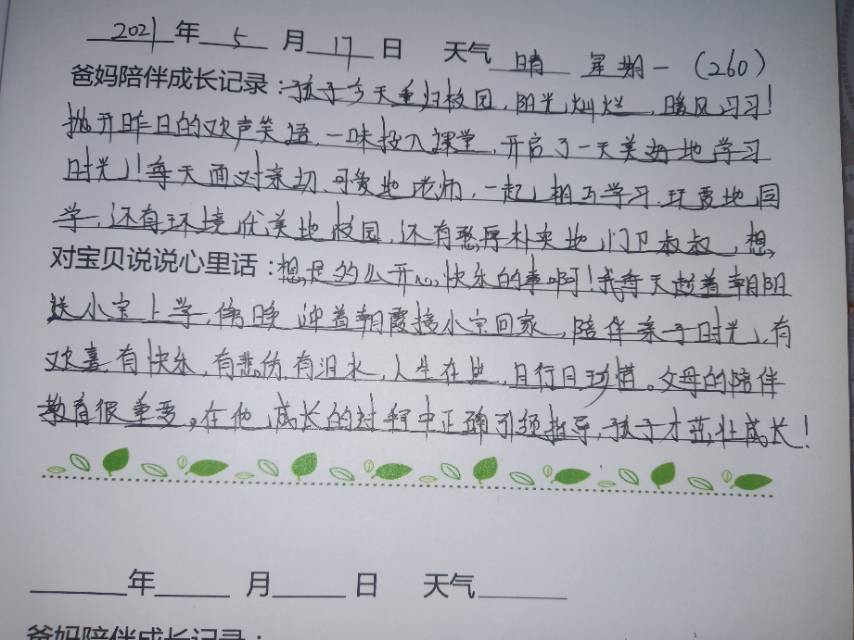 2021年5月17日 天气 晴 星期一 (260)
爸妈陪伴成长记录：孩子今天重归校园，阳光灿烂，暖风习习！
抛开昨日的欢声笑语，一味投入课堂，开启了一天美好地学习
时光！每天面对亲切、可爱地老师，一起相互学习、玩耍地同
学，还有环境优美地校园，还有憨厚朴实地门卫叔叔，想
对宝贝说说心里话：想是多么开心、快乐的事啊！我每天趁着朝阳
送小宝上学，傍晚迎着朝霞接小宝回家，陪伴亲子时光，有
欢喜有快乐，有悲伤有泪水，人生在世，且行且珍惜。父母的陪伴
教育很重要，在他成长的过程中正确引领指导，孩子才茁壮成长！
年 月 日 天气
爸妈陪伴成长记录：